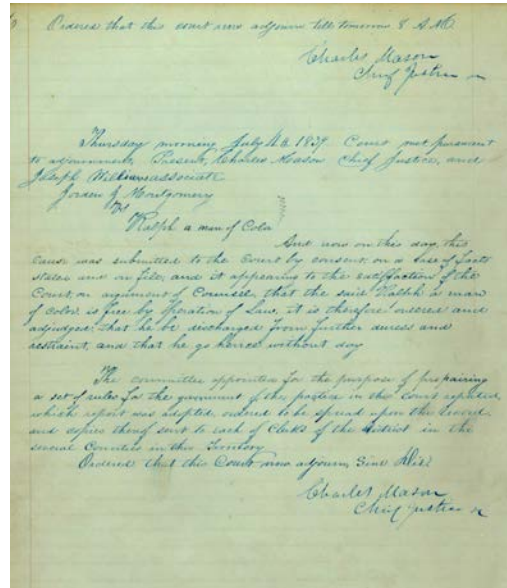 Ordered that this court now adjourn till tomorrow 8 A.M.
Charles Mason
Chief Justice
Thursday morning, July 4th 1839. Court met pursuant
to adjournment, Present, Charles Mason Chief Justice, and
Joseph Williams associate
Jordan J Montgomery
vs
Ralph a man of Color
And now on this day, this
cause was submitted to the Court by consent, on a Case of facts
stated and on file, and it appearing to the satisfaction of the
Court, on argument of Counsel, that the said Ralph a man
of color is free by operation of Law, it is therefore ordered and
adjudged that he be discharged from further duress and
restraint, and that he go hence without day
The committee appointed for the purpose of prepairing
a set of rules for the government of the practice in this court reported,
which report was adopted, ordered to be spread upon the record
and copies thereof sent to each of Clerks of the district in the
several Counties in this Territory
Ordered that this Court now adjourn, Sine Die
Charles Mason
Chief Justice